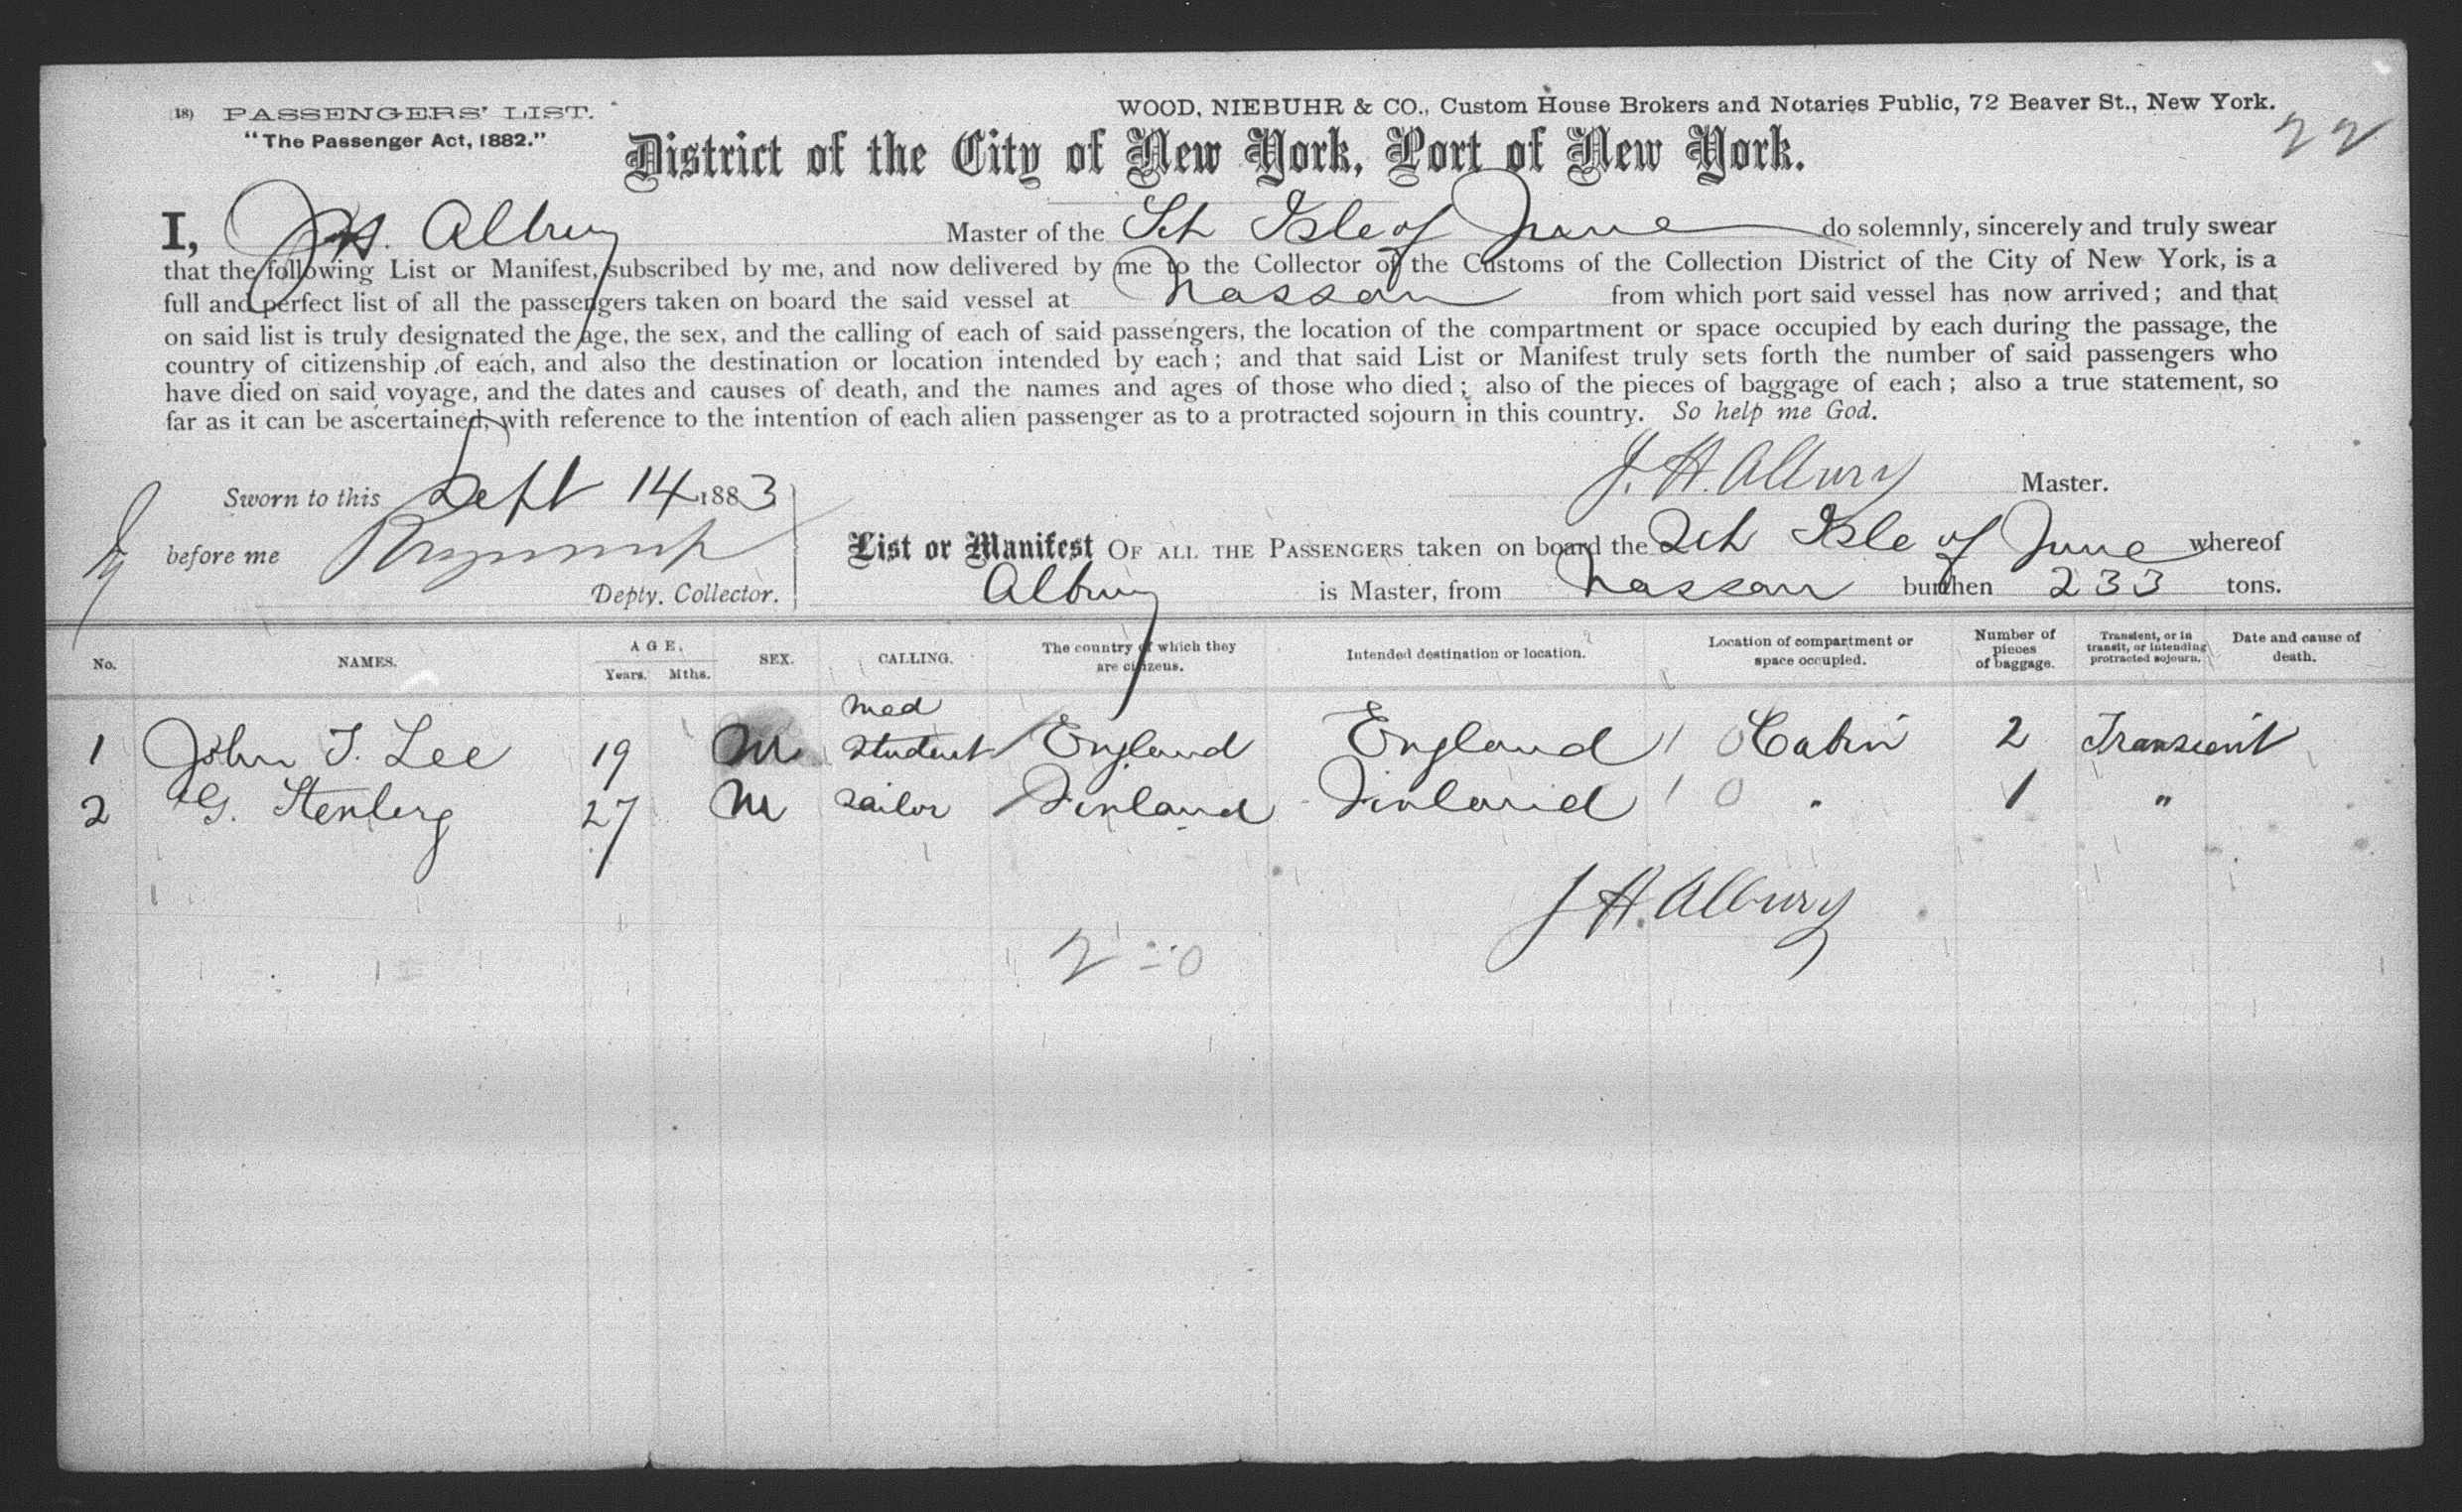 18) PASSENGERS' LIST.
"The Passenger Act, 1882."
WOOD, NIEBUHR & CO., Custom House Brokers and Notaries Public, 72 Beaver St., New York.
22
District of the City of New York, Port of New York.
I, J. H. Albury Master of the Sch Isle of June do solemnly, sincerely and truly swear
that the following List or Manifest, subscribed by me, and now delivered by me to the Collector of the Customs of the Collection District of the City of New York, is a
full and perfect list of all the passengers taken on board the said vessel at Nassau from which port said vessel has now arrived; and that
on said list is truly designated the age, the sex, and the calling of each of said passengers, the location of the compartment or space occupied by each during the passage, the
country of citizenship of each, and also the destination or location intended by each; and that said List or Manifest truly sets forth the number of said passengers who
have died on said voyage, and the dates and causes of death, and the names and ages of those who died; also of the pieces of baggage of each; also a true statement, so
far as it can be ascertained, with reference to the intention of each alien passenger as to a protracted sojourn in this country. So help me God.
J. H. Albury Master.
Sworn to this Sept 14 1883
before me
Depty. Collector.
List or Manifest OF ALL THE PASSENGERS taken on board the Sch Isle of June whereof
Albury is Master, from Nassau burthen 233 tons.
No. NAMES. AGE. Years. Mths. SEX. CALLING. The country of which they are citizens. Intended destination or location. Location of compartment or space occupied. Number of pieces of baggage. Transient, or in transit, or intending protracted sojourn. Date and cause of death.
1 John T. Lee 19 M med student England England 1 0 Cabin 2 Transient
2 G. Stenberg 27 M sailor Finland Finland 1 0 " 1 "
J H. Albury
2 = 0